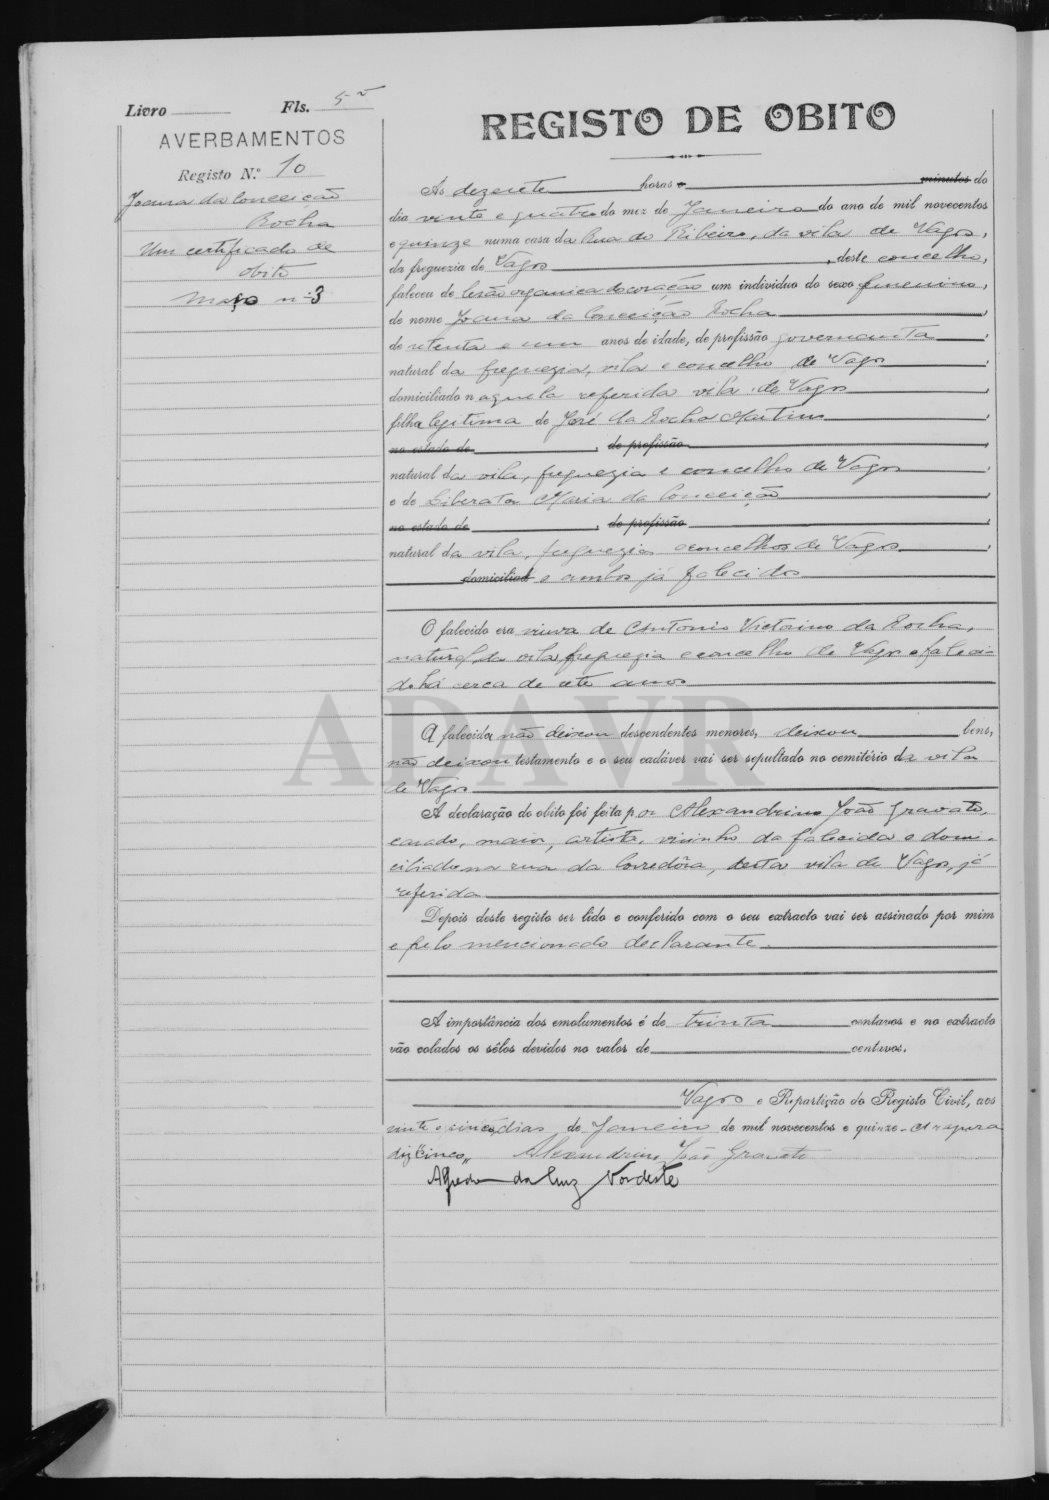 Livro Fls. 5 v
AVERBAMENTOS
Registo N.º 10
Joana da Conceição
Rocha
Um certificado de
obito
Maço nº 3
REGISTO DE OBITO
As dezesete horas e minutos do
dia vinte e quatro do mez de Janeiro do ano de mil novecentos
e quinze numa casa da Rua do Ribeiro, da vila de Vagos,
da freguezia de Vagos, deste concelho,
faleceu de lesão organica do coração um individuo do sexo femenino,
de nome Joana da Conceição Rocha,
de setenta e um anos de idade, de profissão governanta,
natural da freguezia, vila e concelho de Vagos,
domiciliado naquela referida vila de Vagos,
filha legitima de José da Rocha Martins,
no estado de, de profissão,
natural da vila, freguezia e concelho de Vagos,
e de Liberata Maria da Conceição,
no estado de, de profissão,
natural da vila, freguezia e concelho de Vagos,
domiciliad e ambos já falecidos
O falecido era viuva de Antonio Victorino da Rocha,
natural da vila freguezia e concelho de Vagos e faleci-
do há cerca de sete anos
A falecida não deixou descendentes menores, deixou bens,
não deixou testamento e o seu cadáver vai ser sepultado no cemitério da vila
de Vagos
A declaração do obito foi feita por Alexandrino João Gravato,
casado, maior, artista, visinho da falecida e domi-
ciliado na rua da Corredôra, desta vila de Vagos, já
referida
Depois deste registo ser lido e conferido com o seu extracto vai ser assinado por mim
e pelo mencionado declarante.
A importância dos emolumentos é de trinta centavos e no extracto
vão colados os sêlos devidos no valor de centavos.
Vagos e Repartição do Registo Civil, aos
vinte e cinco dias de Janeiro de mil novecentos e quinze. A rasura
diz "cinco" Alexandrino João Gravato
Alfredo da Cruz Nordeste
APAVR